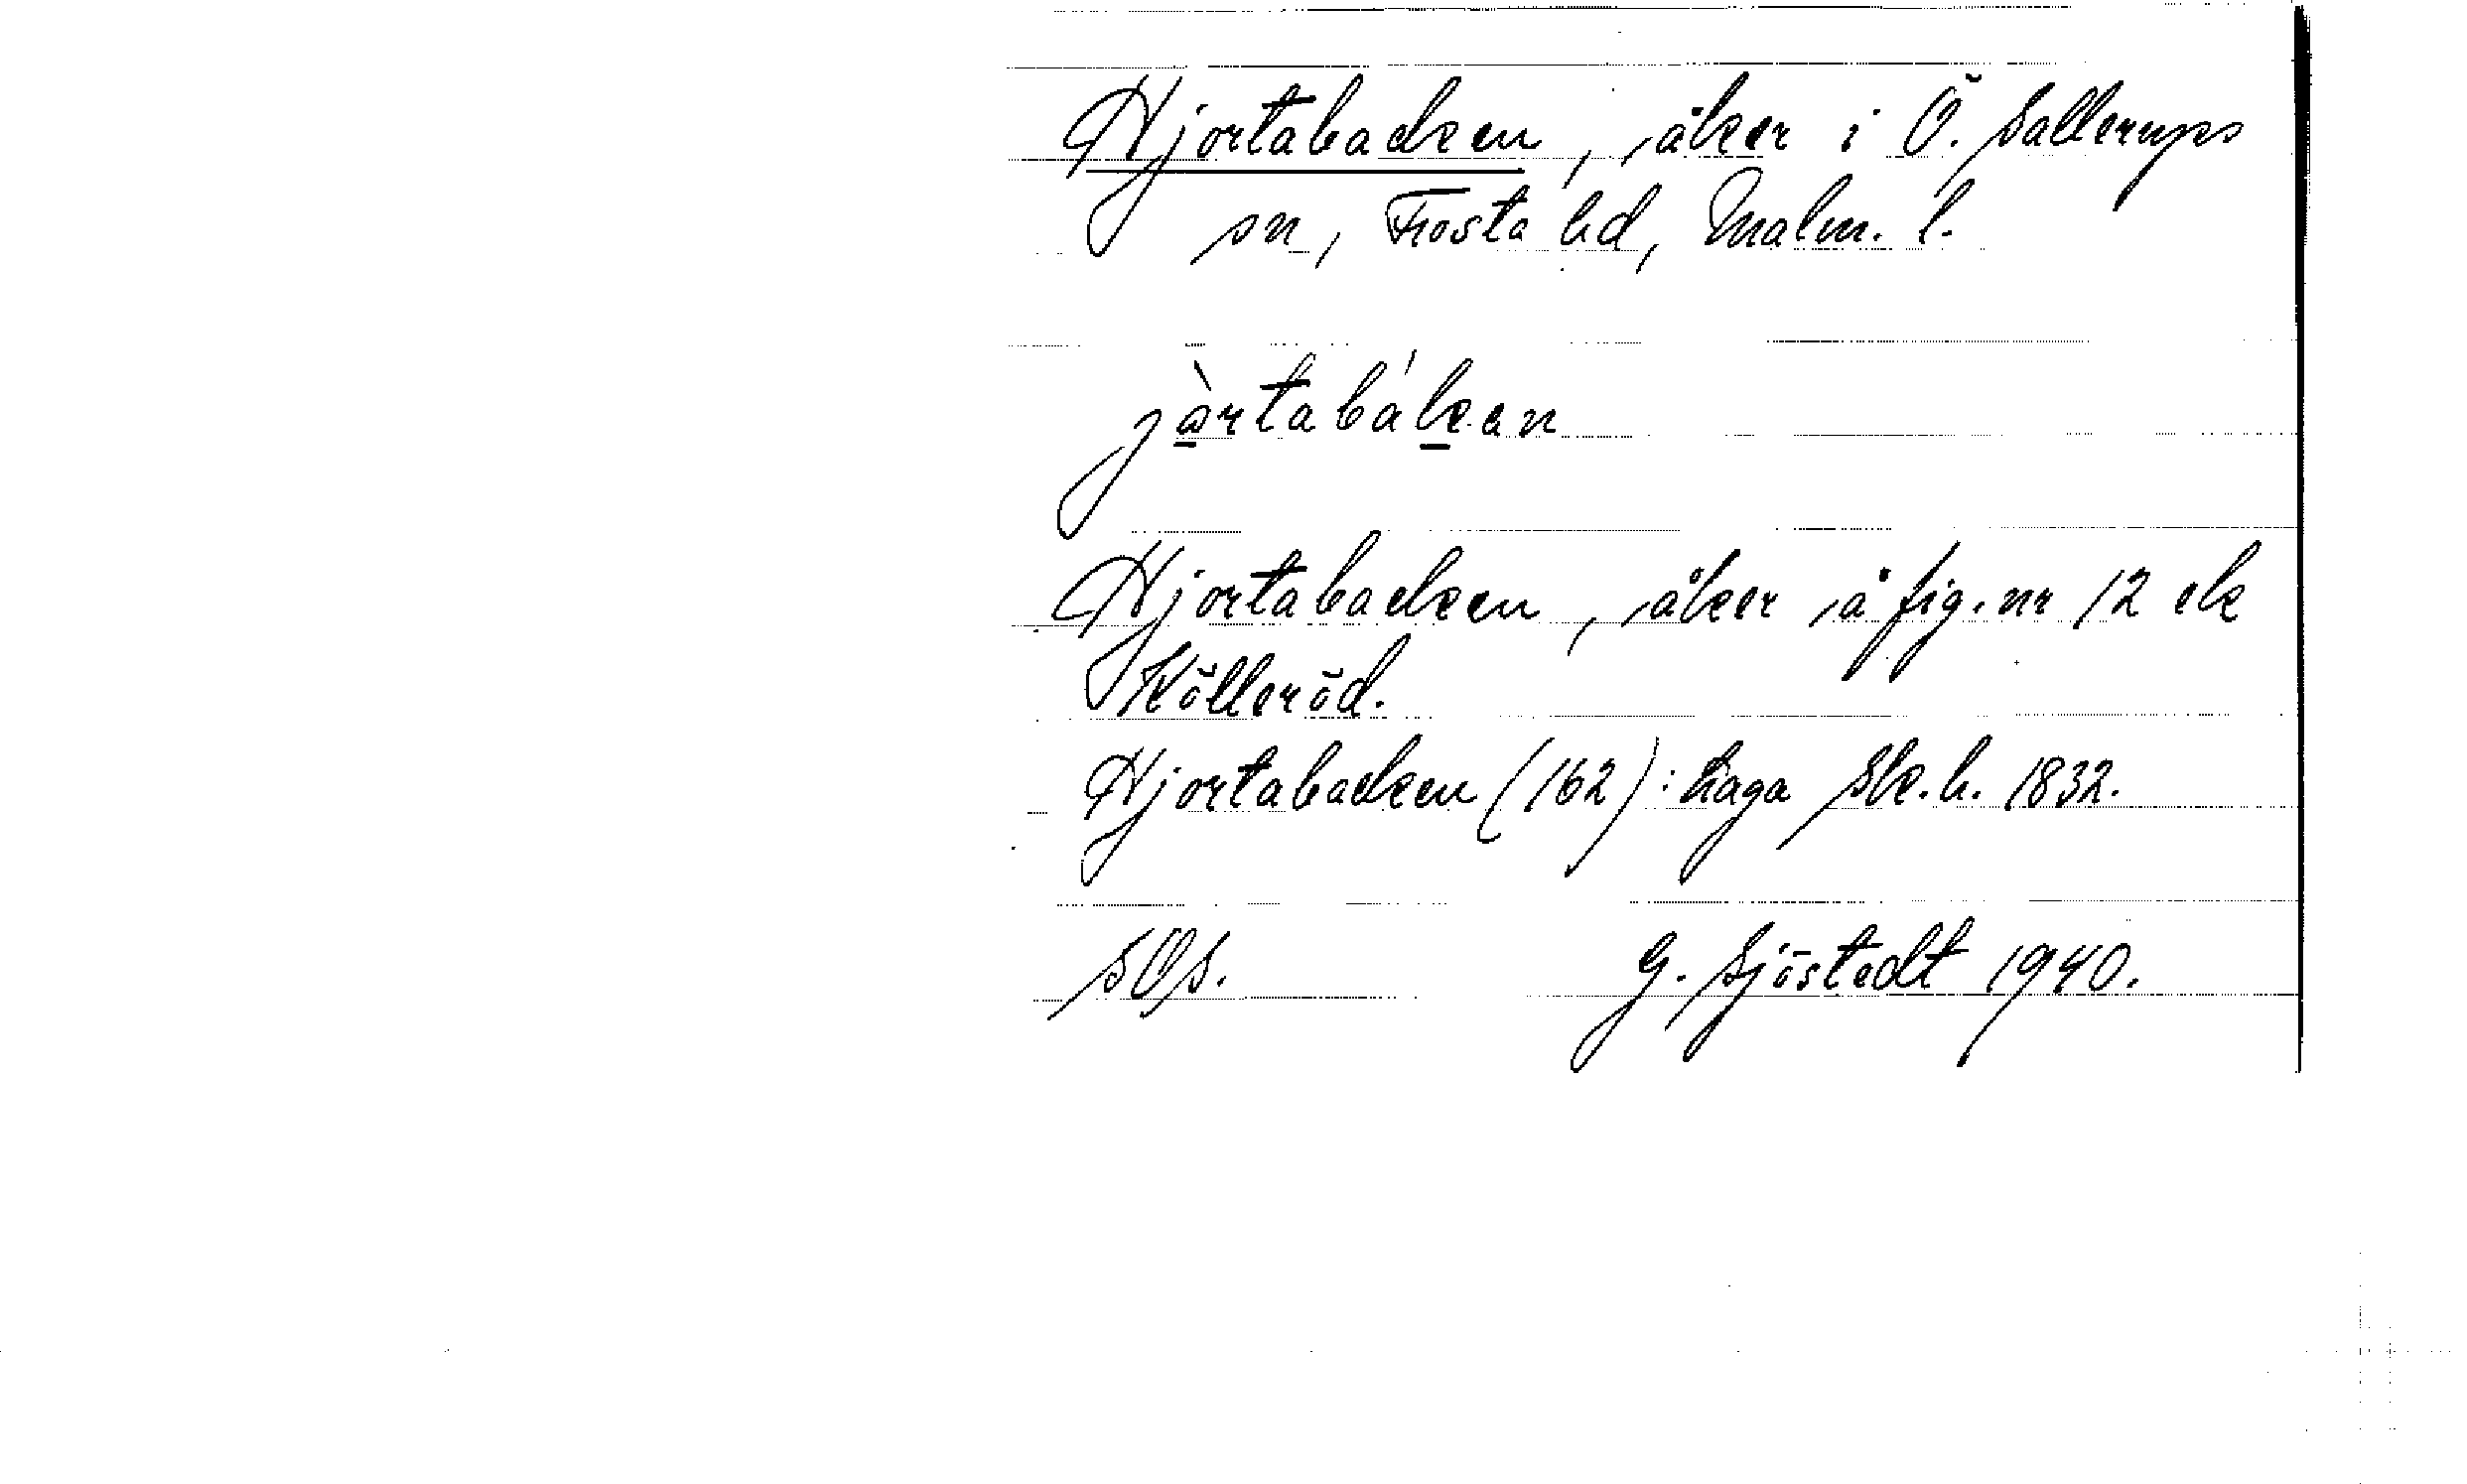 Hjortabacken, åker i Ö. Sallerups
sn, Frosta hd, Malm. l.
jàrtabákan
Hjortabacken, åker å fig. nr 12 ek
Kölleröd.
Hjortabacken (162): Laga Sk.h. 1832.
SOS. G. Sjöstedt 1940.